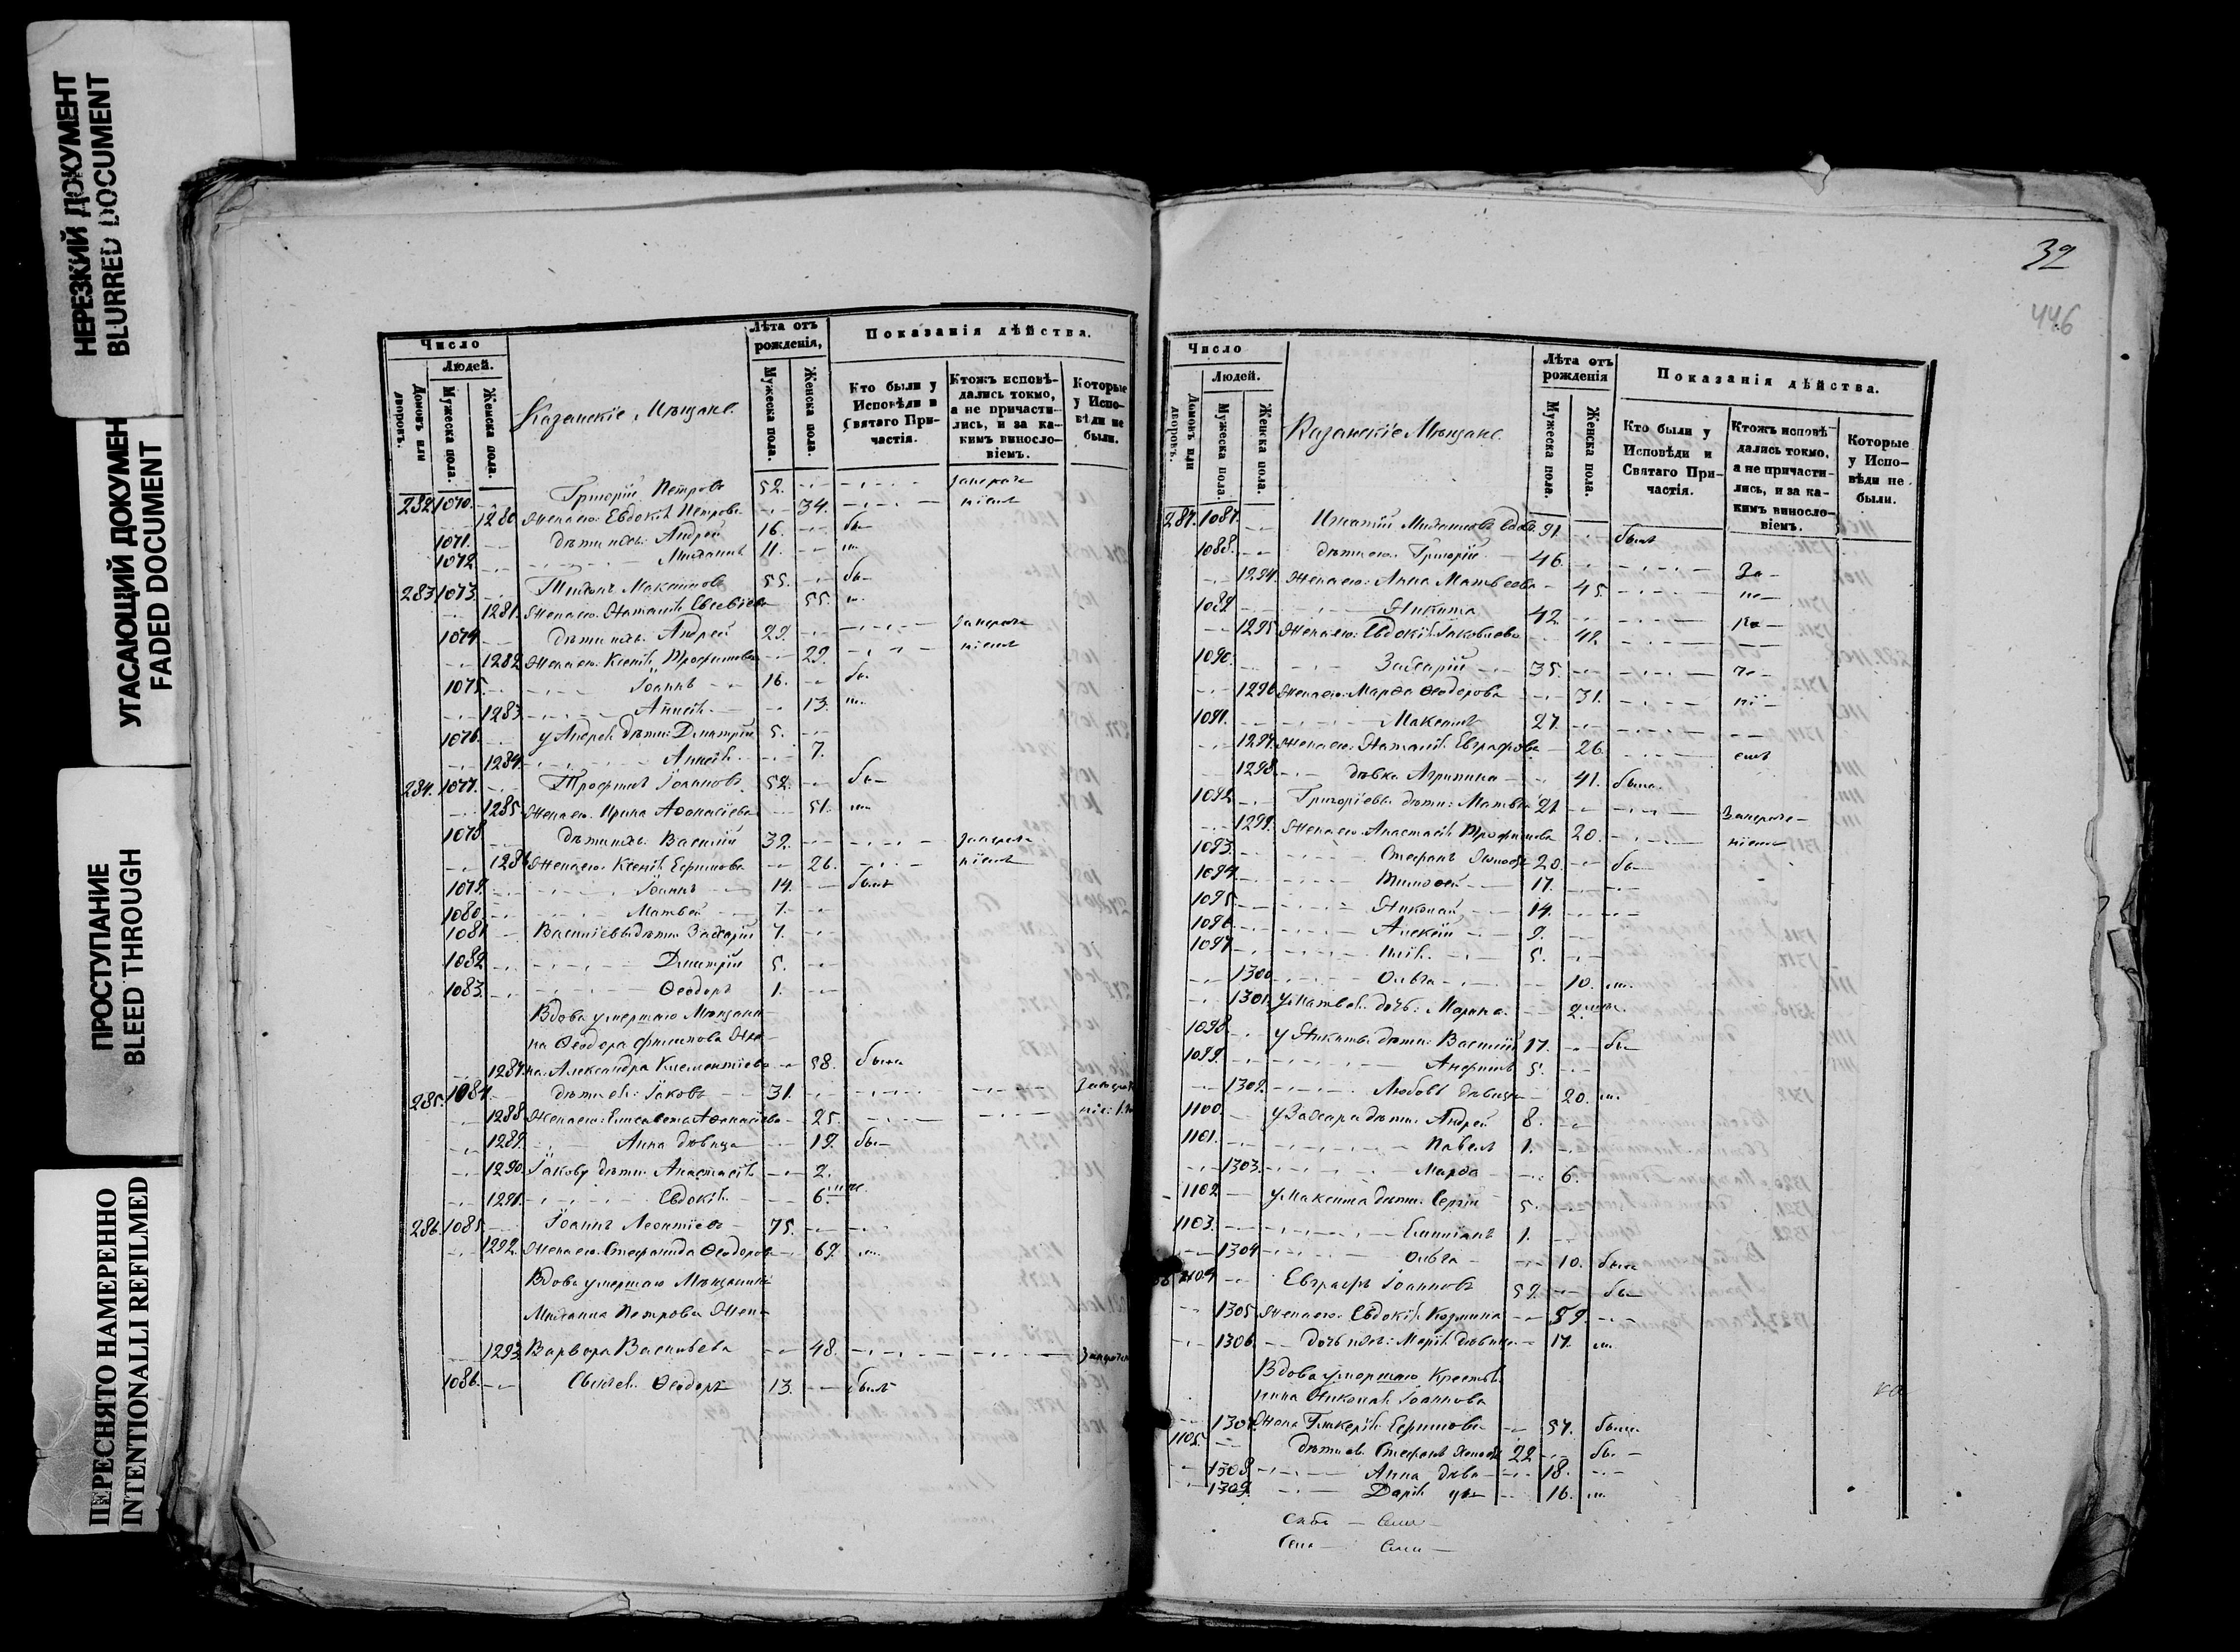 НЕРЕЗКИЙ ДОКУМЕНТ
BLURRED DOCUMENT
УГАСАЮЩИЙ ДОКУМЕН
FADED DOCUMENT
ПРОСТУПАНИЕ
BLEED THROUGH
ПЕРЕСНЯТО НАМЕРЕННО
INTENTIONALLI REFILMED
Число
Людей.
Домовъ или дворовъ.
Мужеска пола.
Женска пола.
Казанскіе Мѣщане.
Лѣта отъ рожденія,
Мужеска пола.
Женска пола.
Показанія дѣйства.
Кто были у Исповѣди и Святаго Причастія.
Ктожъ исповѣдались токмо, а не причастились, и за какимъ винословіемъ.
Которые у Исповѣди не были.
282 1070. Григорій Петровъ 52.
1280 Жена его: Евдокія Петрова 34.
1071. дѣти ихъ: Андрей 16. бы
1072 Михаилъ 11.
283 1073. Максимовъ 55. бы
1281. Жена его: Наталія Евсевіева 55.
1074 дѣти ихъ: Андрей 29.
1282 Жена его: Ксенія Трофимова 29.
1075. Іоаннъ 16. бы
1283 13.
1076. у Андрея дѣти: Димитрій 5.
1284. 7.
284. 1077. Трофимъ Іоанновъ 52. бы
1285 Жена его: Ирина Аѳонасіева 51.
1078 дѣти ихъ: Василій 32.
1286 Жена его: Ксенія Ефимова 26.
1079. Іоаннъ 14. былъ
1080. Матвей 7.
1081 Василіевы дѣти: Захарій 7.
1082 Димитрій 5.
1083. Ѳеодоръ 1.
Вдова умершаго Мѣщани
на Ѳеодора Филипова Же
1287 на Александра Климентіева 58. была
285. 1084. дѣти ея: Іаковъ 31.
1288 Жена его: Елисавета Аѳанасіева 25.
1289. Анна дѣвица 19. бы
1290. Іакова дѣти: Анастасія 2.
1291. Евдокія 6
286. 1085. Іоаннъ Леонтіевъ 75.
1292. Жена его: Стефанида Ѳеодорова 69.
Вдова умершаго Мѣщанина
Михаила Петрова Жена
1293 Варвара Васильева 48.
1086. Сынъ ея: Ѳеодоръ 13. былъ
32
446
Число
Людей.
Домовъ или дворовъ.
Мужеска пола.
Женска пола.
Казанскіе Мѣщане.
Лѣта отъ рожденія
Мужеска пола.
Женска пола.
Показанія дѣйства.
Кто были у Исповѣди и Святаго Причастія.
Ктожъ исповѣдались токмо, а не причастились, и за какимъ винословіемъ.
Которые у Исповѣди не были.
287. 1087. Игнатій Михаиловъ вдов 91. былъ
1088. дѣти его: Григорій 46. За
1294. Жена его: Анна Матвеева 45. не
1089 Никита 42.
1295 Жена его: Евдокія Іаковлева 42.
1090. Захарій 35.
1296 Жена его: Марѳа Ѳеодорова 31. ні
1091. Максимъ 27.
1297. Жена его: Наталія Евграфова 26.
1298. дѣвка Агрипина 41. была
1092. Григоріевы дѣти: Матвей 21
1299. Жена его: Анастасія Трофимова 20.
1093. Стефанъ 20. бы
1094. Тимоѳей 17.
1095 Николай 14.
1096 Алексій 9.
1097 5.
1300 Ольга 10.
1301. у Матвея дочь: Марина 2
1098. у Никиты дѣти: Василій 17. бы
1099. 5.
1302. Любовь дѣвица 20.
1100. у Захара дѣти: Андрей 8.
1101. Павелъ 1.
1303. Марѳа 6.
1102 у Максима дѣти: Сергій 5
1103. 1.
1304 Ольга 10. была
1104 Евграфъ Іоанновъ 59. бы
1305 Жена его: Евдокія Козмина 59.
1306. дочь ихъ: Марія дѣвица 17.
Вдова умершаго Крестья
нина Николая Іоаннова
1307. Жена Гликерія Ефимова 57. была
1105. дѣти ея: Стефанъ 22 бы
1308 Анна дѣва 18.
1309. Дарія 16.